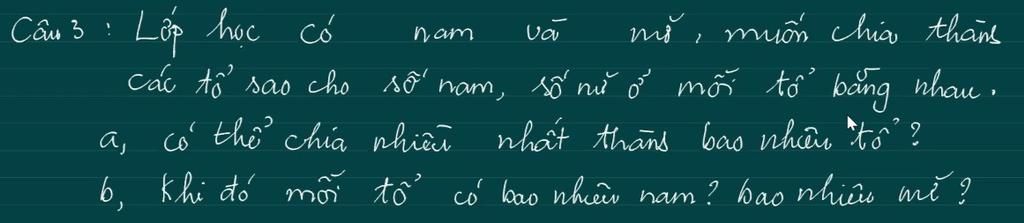 Câu 3 : Lớp học có nam và nữ, muốn chia thành
các tổ sao cho số nam, số nữ ở mỗi tổ bằng nhau.
a, có thể chia nhiều nhất thành bao nhiêu tổ?
b, Khi đó mỗi tổ có bao nhiêu nam? bao nhiêu nữ?